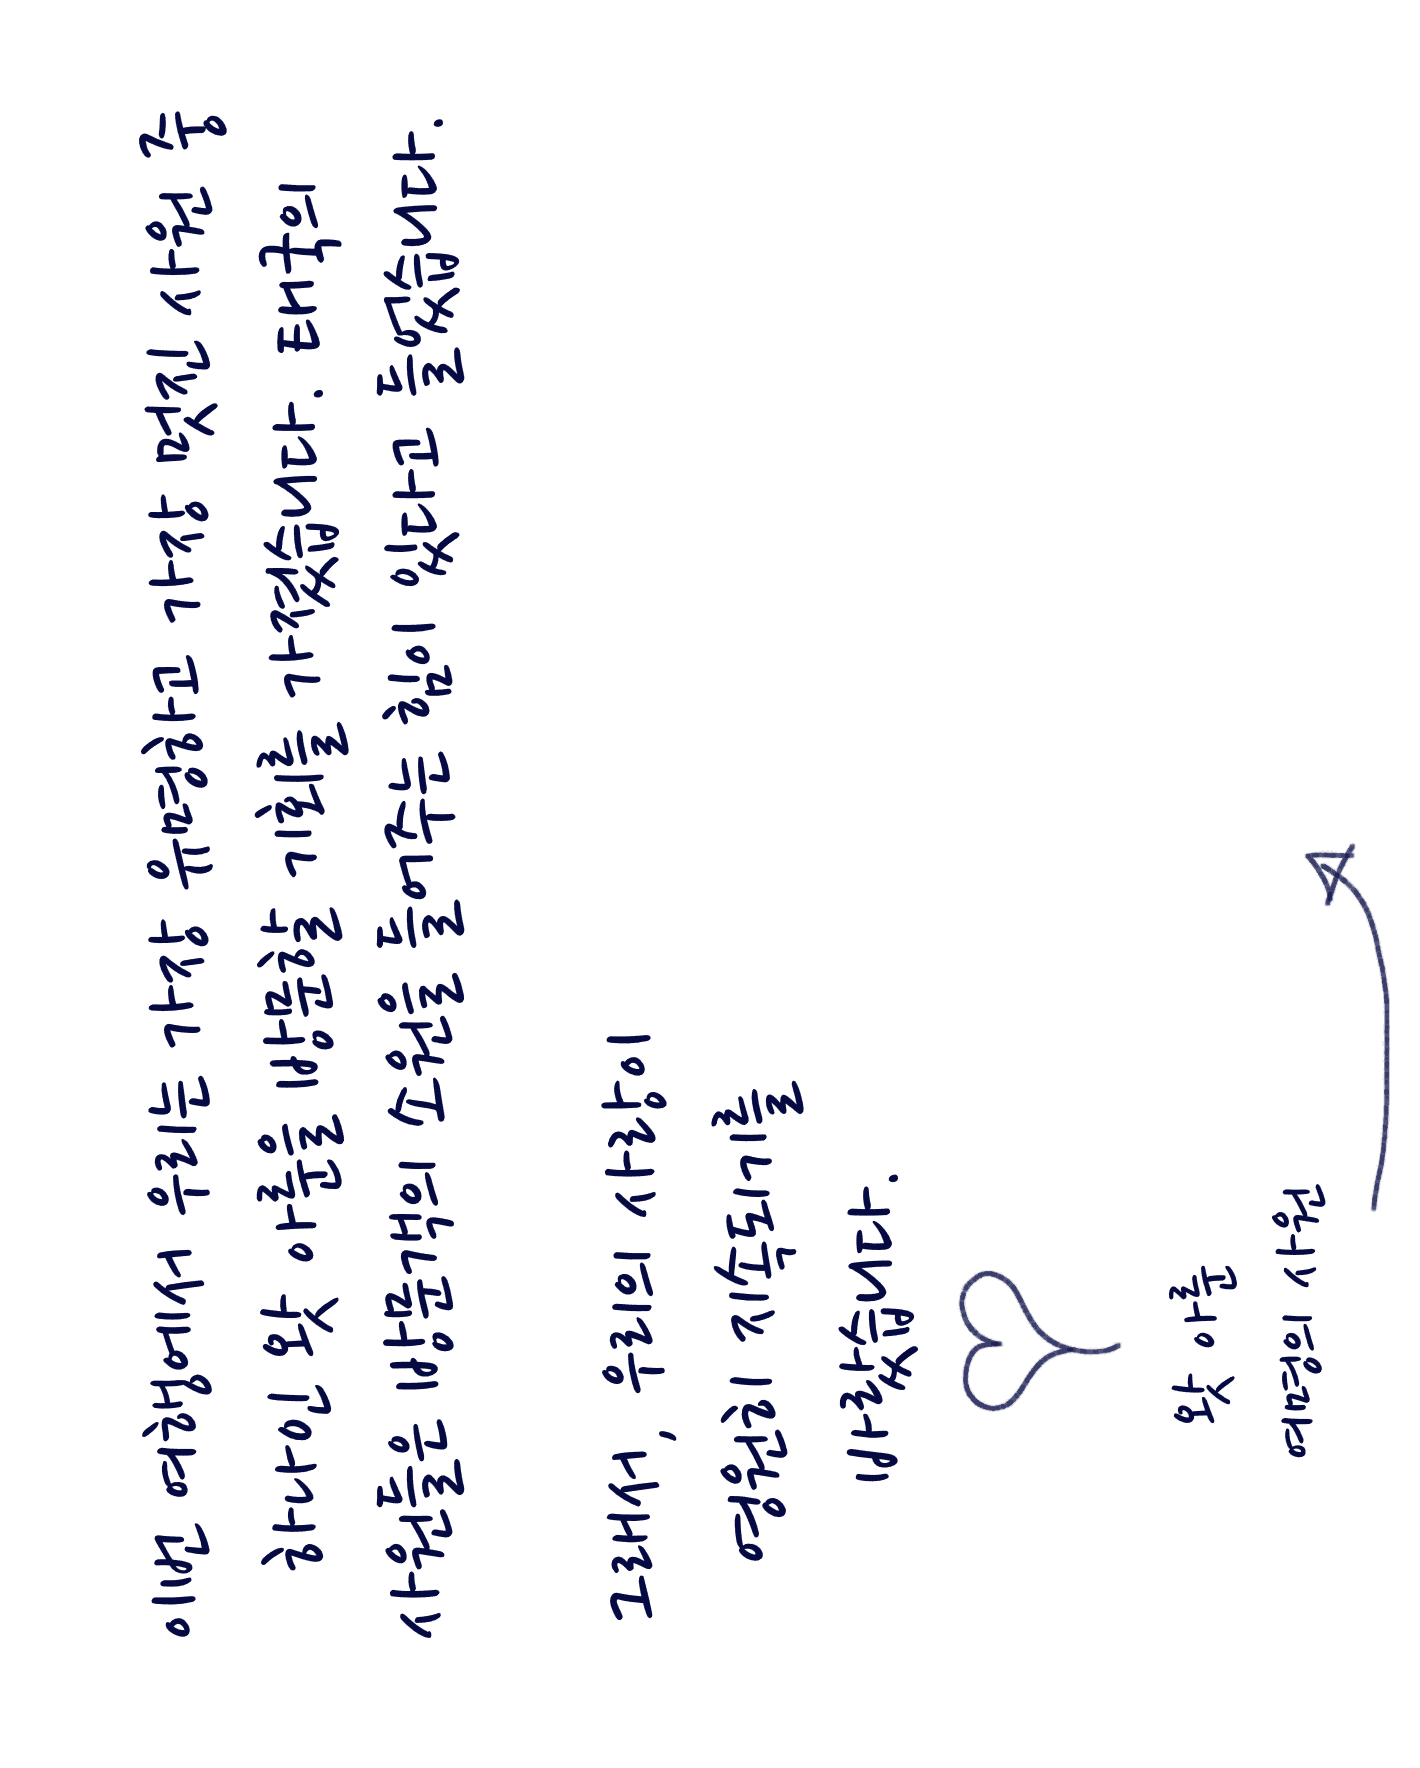 이번 여행에서 우리는 가장 유명하고 가장 멋진 사원 중
하나인 왓 아룬을 방문할 기회를 가졌습니다. 태국의
사원들은 방문객의 소원을 들어주는 힘이 있다고 들었습니다.
그래서, 우리의 사랑이
영원히 지속되기를
바랐습니다.
왓 아룬
여명의 사원